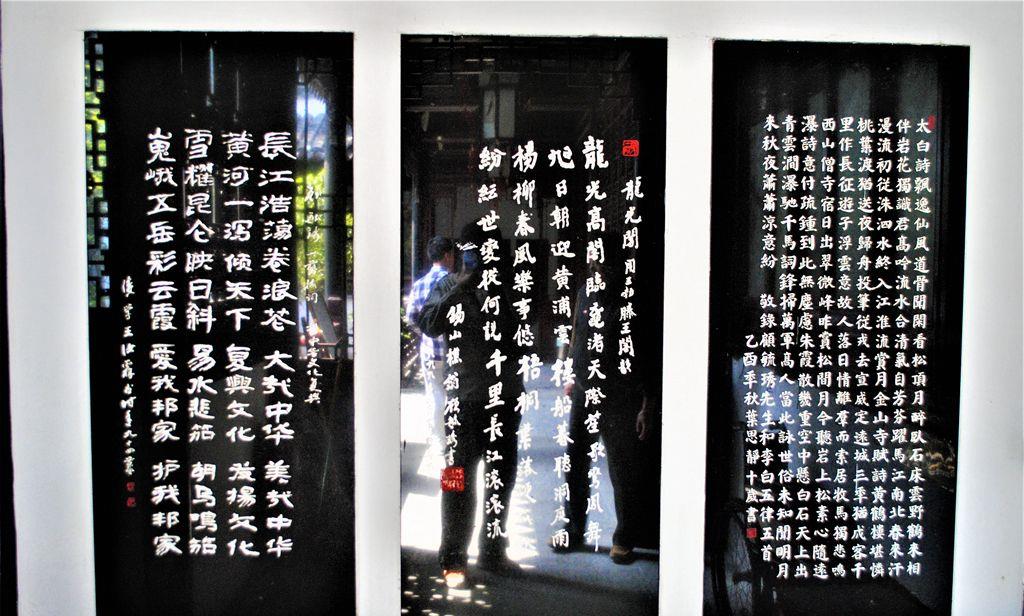 太白詩飄逸仙風道骨閑閑看松頂月醉臥石床雲野鶴來相
伴岩花獨識君高吟流水合清氣自芳芬躍馬江南北春來汗
漫流初從洙泗水終入江淮流賞月金山寺賦詩黃鶴樓堪憐
桃葉渡猶送夜歸舟投筆從戎去宣威定遠城三年猶成客千
里作長征遊子浮雲意故人落日情離羣而索居牧馬獨悲鳴
西山僧寺宿日出翠微峰昨賞松間月今聽岩上松素心隨遠
瀑詩意付疏鍾到此無塵慮朱霞散幾重空中懸白石天上出
青雲澗瀑馳千馬詞鋒掃萬軍高人當此詠世俗未知聞明月
來秋夜蕭蕭涼意紛 敬錄顧毓琇先生和李白五律五首
乙酉季秋葉思靜十歲書
龍光閣 用王勃滕王閣韵
龍光高閣臨黿渚天際笙歌鸞鳳舞
旭日朝迎黃浦雲樓船暮聽洞庭雨
楊柳春風樂事悠梧桐葉落
紛紜世變從何說千里長江滾滾流
錫山樵翁顧毓琇書
長江浩蕩卷浪花 大哉中华 美哉中华
黃河一瀉倾天下 复興文化 发揚文化
雪耀昆仑映日斜 易水悲笳 胡马鳴笳
嵬峨五岳彩云霞 愛我邦家 护我邦家
後學王